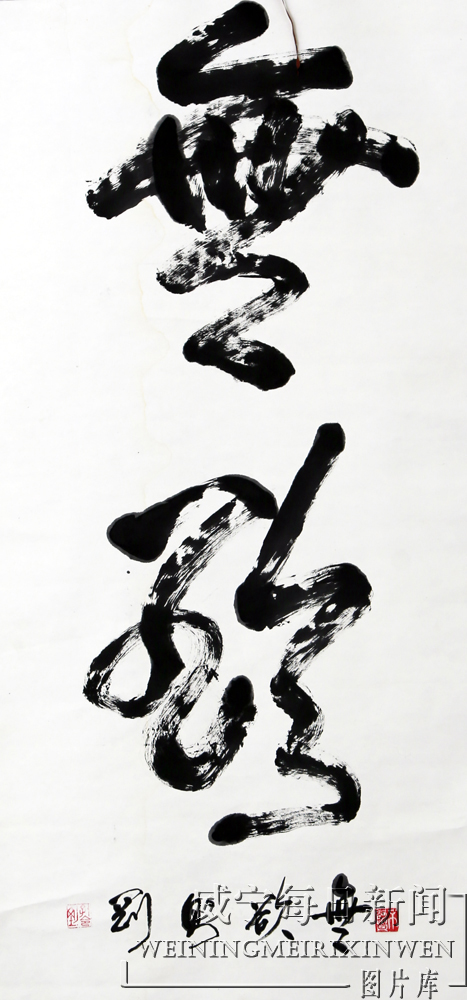 無
欲
無欲
威宁每日新闻
WEININGMEIRIXINWEN
图片库